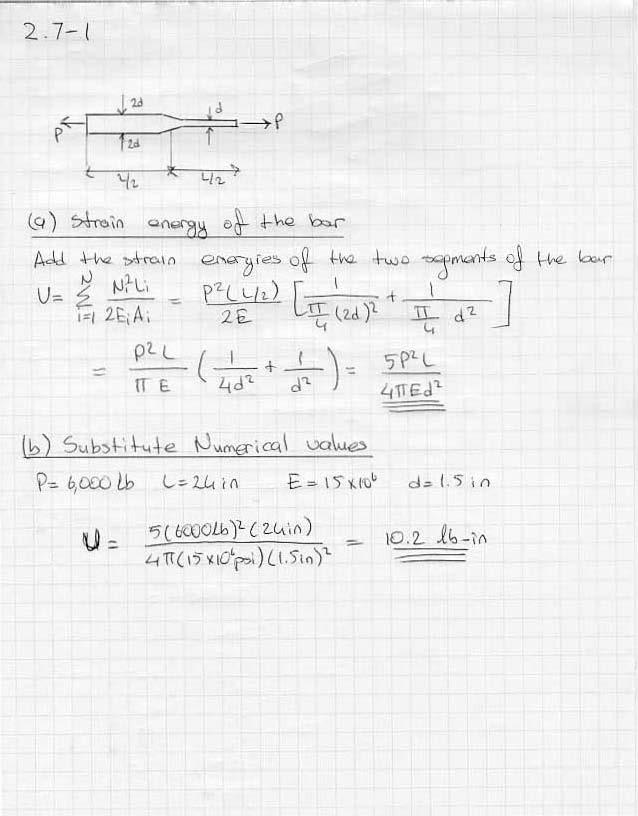 2.7-1
2d d
P P
2d
L/2 L/2
(a) strain energy of the bar
Add the strain energies of the two segments of the bar
U = N Σ i=1 N²Li / 2EiAi = P²(L/2) / 2E [ 1 / π/4 (2d)² + 1 / π/4 d² ]
= P²L / πE ( 1/4d² + 1/d² ) = 5P²L / 4πEd²
(b) Substitute Numerical values
P= 6,000 lb L = 24 in E = 15 x10⁶ d= 1.5 in
U = 5(6000lb)²(24in) / 4π(15x10⁶psi)(1.5in)² = 10.2 lb-in